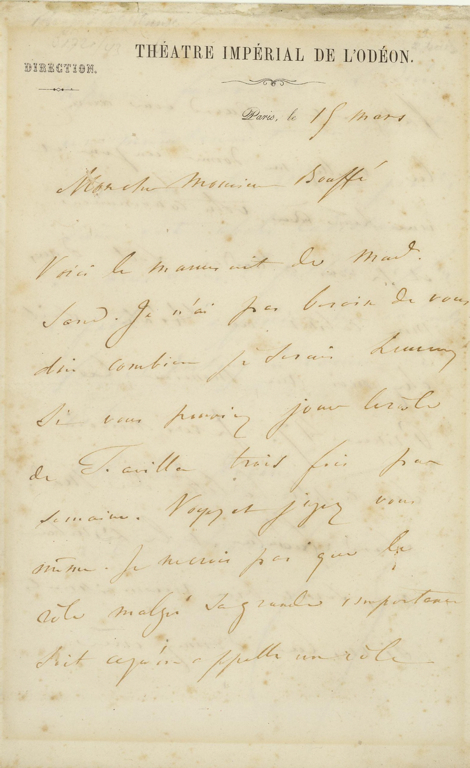 THÉATRE IMPÉRIAL DE L'ODÉON.
DIRECTION.
Paris, le 15 mars
Mon cher monsieur Bouffé
Voici le manuscrit de mad.
Sand. Je n'ai pas besoin de vous
dire combien je serais heureux
si vous pouviez jouer le rôle
de Favilla trois fois par
semaine. Voyez et jugez vous
même. Je ne crois pas que le
rôle malgré sa grande importance
soit ce qu'on appelle un rôle